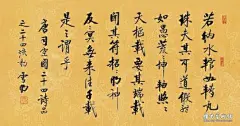 若納水輨如轉丸
珠夫豈可道假體
如愚荒々坤軸悠々
天樞載要其端載
聞其符超々神明
反々冥無來往千載
是之謂乎
唐司空圖二十四詩品
之二十四流動